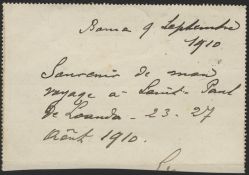 Boma 9 Septembre
1910.
Souvenir de mon
voyage à Saint-Paul
de Loanda - 23-27
Août 1910.